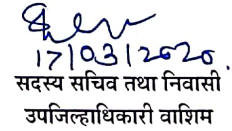 17/03/2020.
सदस्य सचिव तथा निवासी
उपजिल्हाधिकारी वाशिम